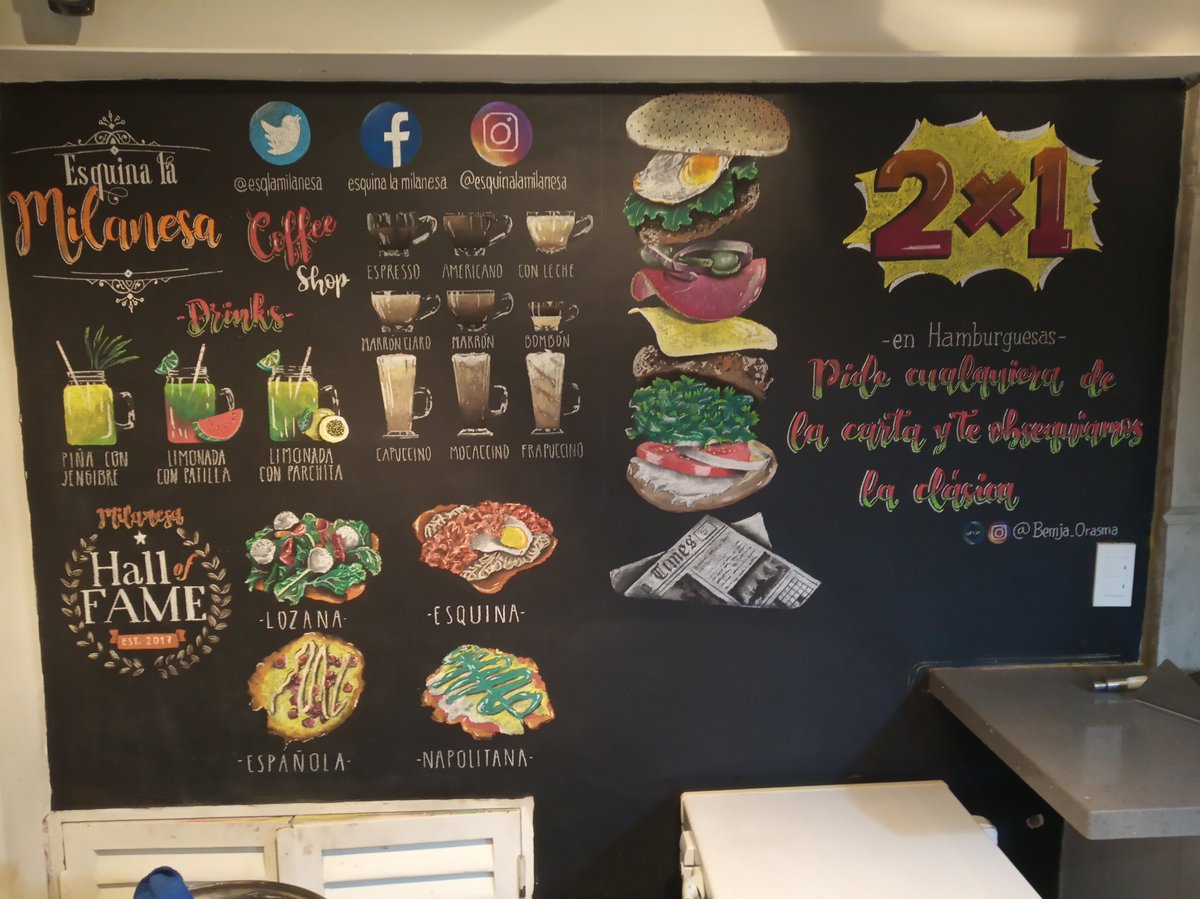 Esquina la
Milanesa
@esqlamilanesa
esquina la milanesa
@esquinalamilanesa
Coffee
Shop
ESPRESSO
AMERICANO
CON LECHE
MARRON CLARO
MARRÓN
BOMBÓN
CAPUCCINO
MOCACCINO
FRAPUCCINO
-Drinks-
PIÑA CON
JENGIBRE
LIMONADA
CON PATILLA
LIMONADA
CON PARCHITA
Milanesa
Hall of
FAME
EST. 2017
-LOZANA-
-ESQUINA-
-ESPAÑOLA-
-NAPOLITANA-
Times
2x1
-en Hamburguesas-
Pide cualquiera de
la carta y te obsequiamos
la clásica
@Bemja_Orasma